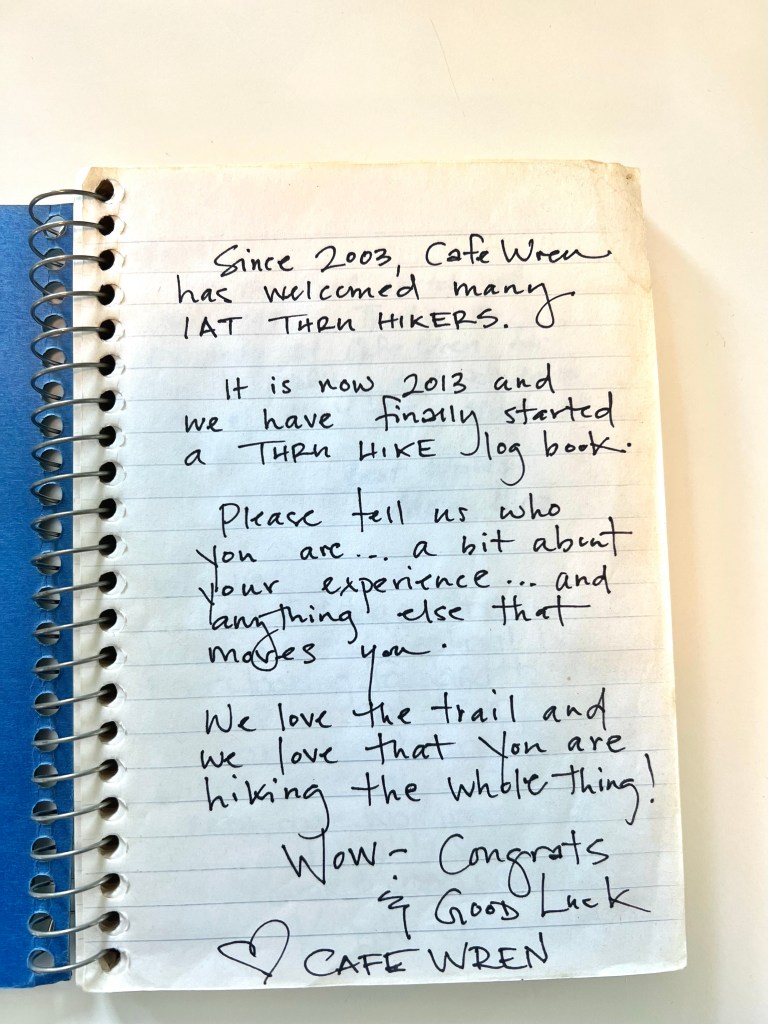 Since 2003, Cafe Wren
has welcomed many
IAT THRU HIKERS.
It is now 2013 and
we have finally started
a THRU HIKE log book.
Please tell us who
you are... a bit about
your experience... and
anything else that
moves you.
We love the trail and
we love that you are
hiking the whole thing!
Wow - Congrats
& GOOD Luck
♡ CAFE WREN